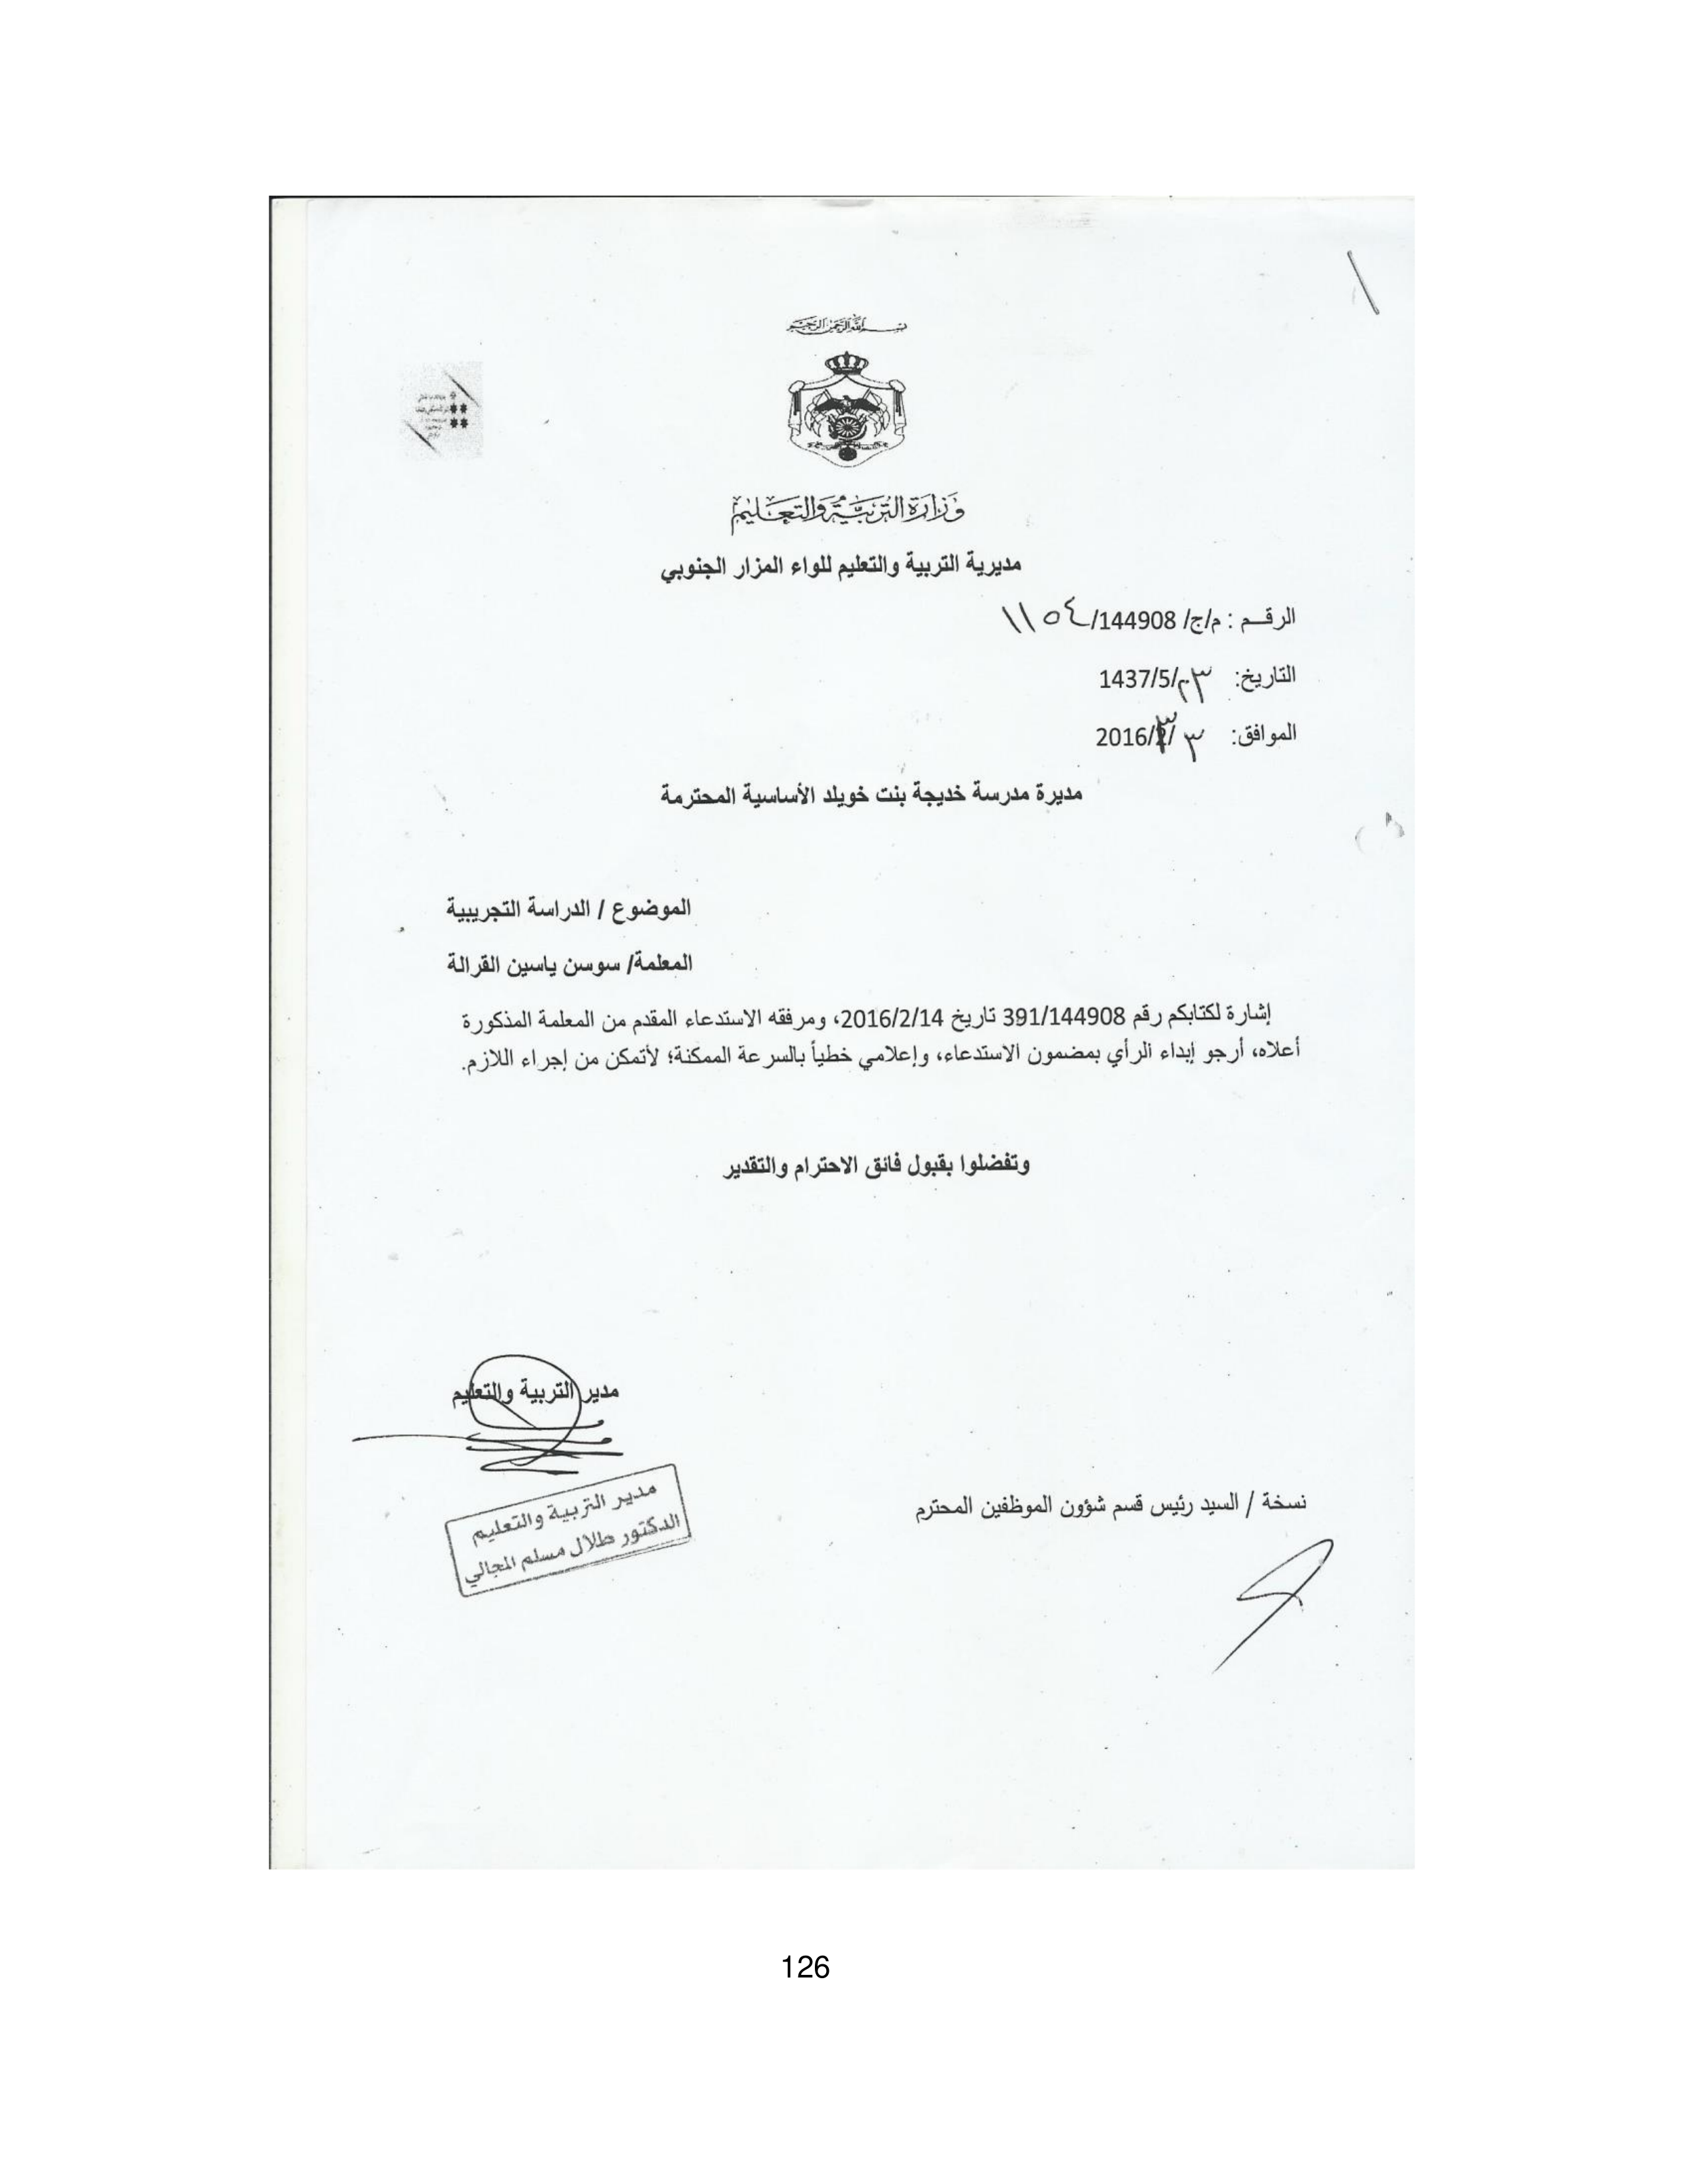 بسم الله الرحمن الرحيم
وزارة التربية والتعليم
مديرية التربية والتعليم للواء المزار الجنوبي
الرقـم : م/ج/ 144908/ ١١٥٤
التاريخ: ٢٣/1437/5
الموافق: ٣/٣/2016
مديرة مدرسة خديجة بنت خويلد الأساسية المحترمة
الموضوع / الدراسة التجريبية
المعلمة/ سوسن ياسين القرالة
إشارة لكتابكم رقم 391/144908 تاريخ 2016/2/14، ومرفقه الاستدعاء المقدم من المعلمة المذكورة
أعلاه، أرجو إبداء الرأي بمضمون الاستدعاء، وإعلامي خطياً بالسرعة الممكنة؛ لأتمكن من إجراء اللازم.
وتفضلوا بقبول فائق الاحترام والتقدير
مدير التربية والتعليم
مدير التربية والتعليم
الدكتور طلال مسلم المجالي
نسخة / السيد رئيس قسم شؤون الموظفين المحترم
126